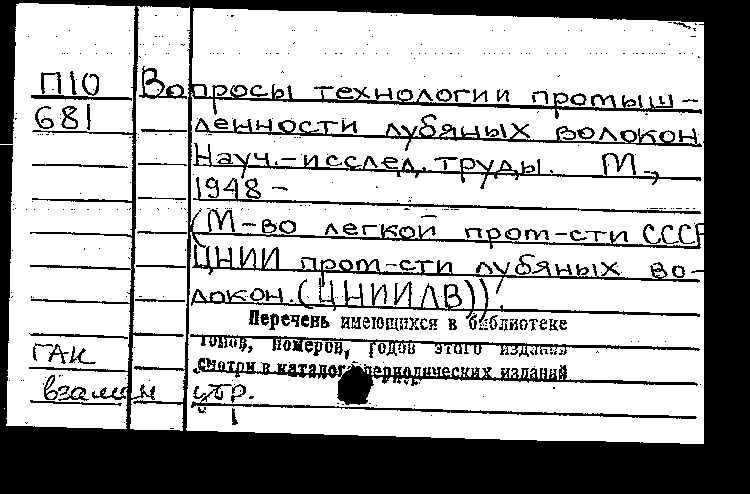 П10 Вопросы технологии промыш-
681 ленности лубяных волокон.
Науч.-исслед. труды. М.,
1948 -
(М-во легкой пром-сти СССР
ЦНИИ пром-сти лубяных во-
локон. (ЦНИИЛВ)).
Перечень имеющихся в библиотеке
томов, номеров, годов этого издания
смотри в каталоге периодических изданий
ГАК
взамен утр.